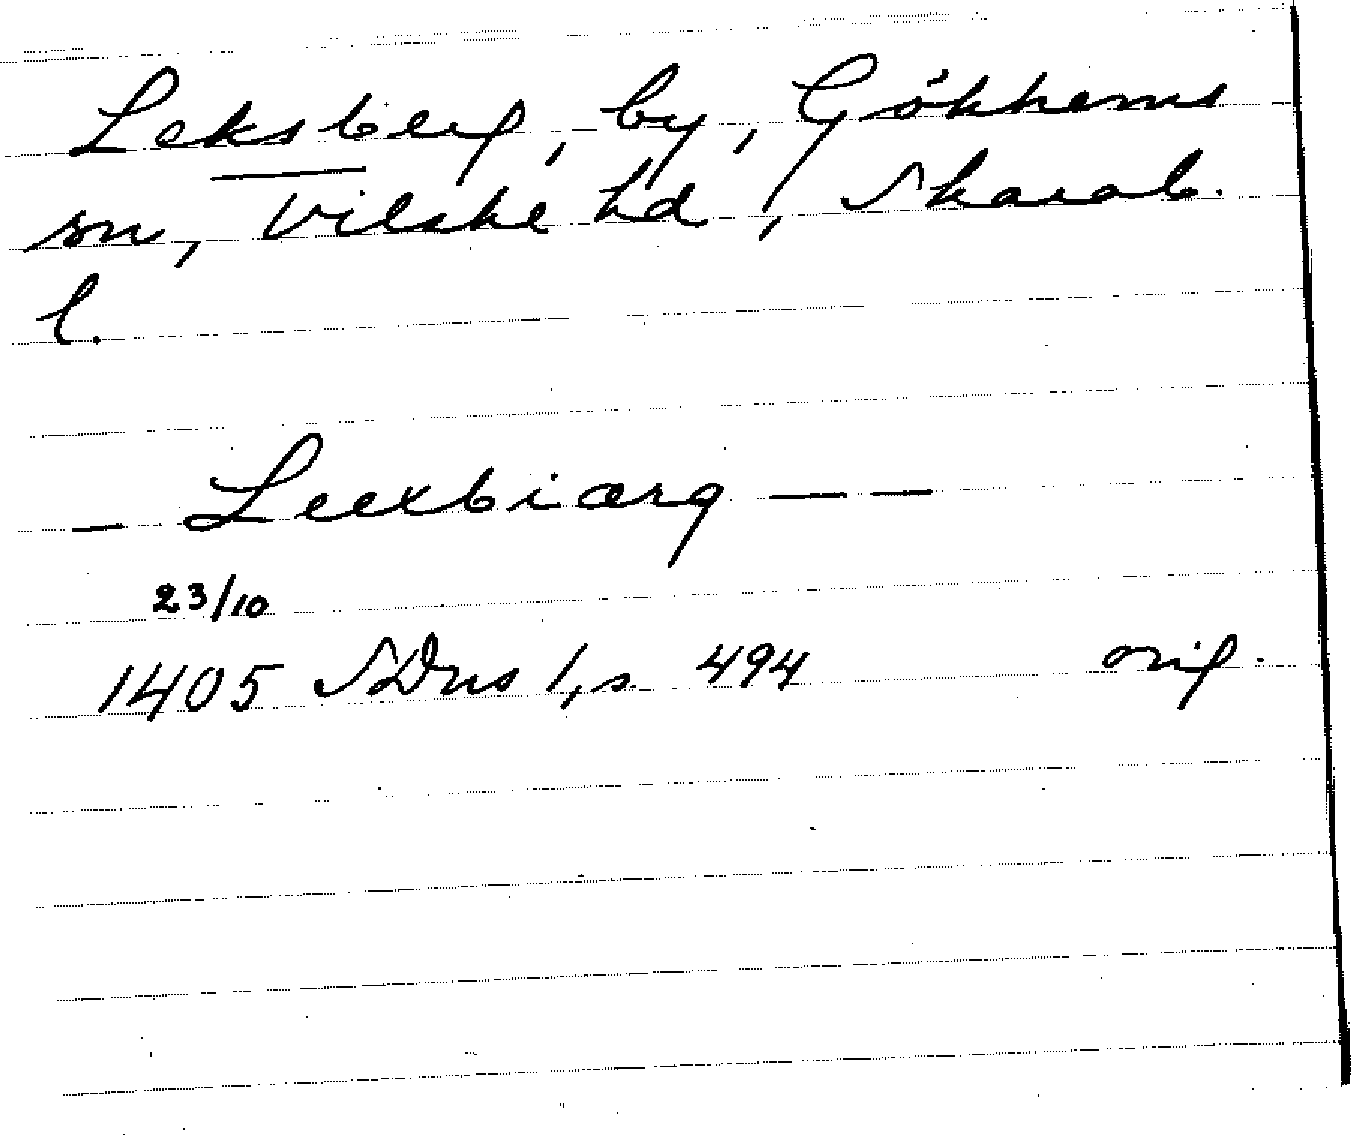 Leksberg, by, Gökhems
sn, Vilske hd, Skarab.
l.
— Leexbiærg — —
23/10
1405 SDns 1, s. 494 orig.